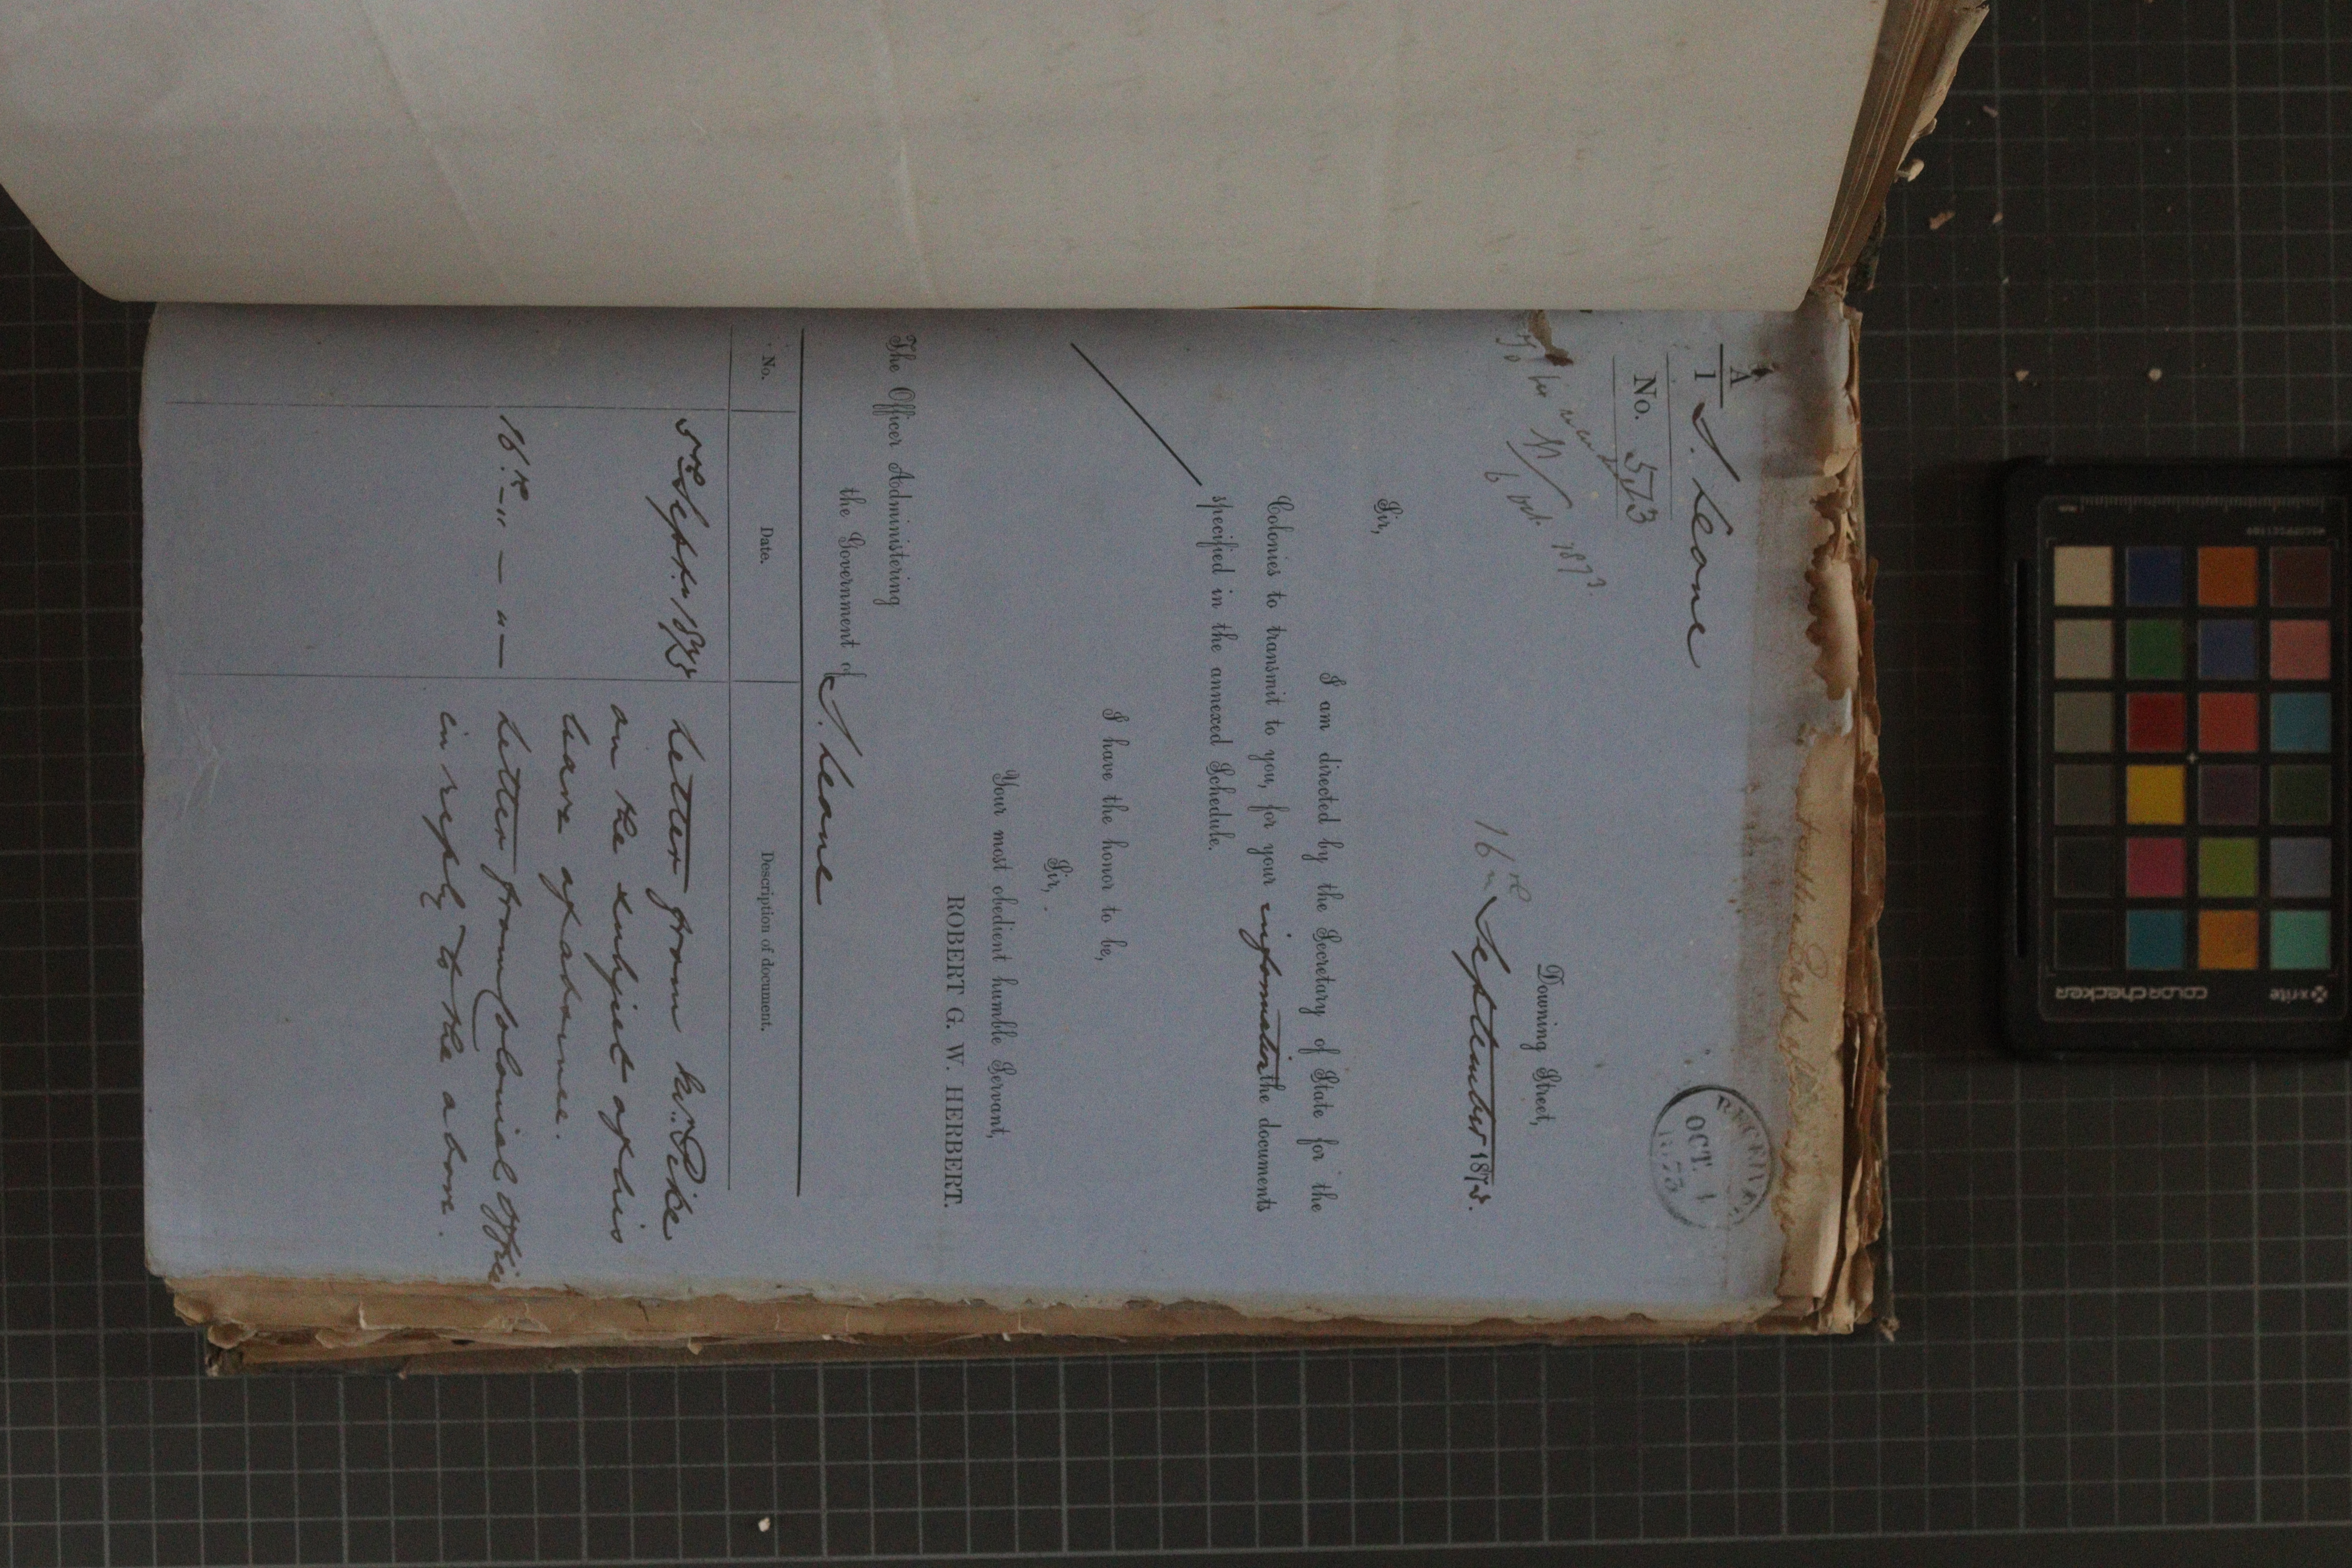 A
1
S. Leone
No. 573
RECEIVED
OCT. 4
1873
6 Oct. 1873.
Downing Street,
16th September 1873.
Sir,
I am directed by the Secretary of State for the
Colonies to transmit to you, for your information the documents
specified in the annexed Schedule.
I have the honor to be,
Sir,
Your most obedient humble Servant,
ROBERT G. W. HERBERT.
The Officer Administering
the Government of S. Leone
No. Date. Description of document.
5th Septr. 1873 Letter from Mr. Pike
on the subject of his
leave of absence.
16th - " - " - Letter from Colonial Office
in reply to the above.
x-rite
colorchecker